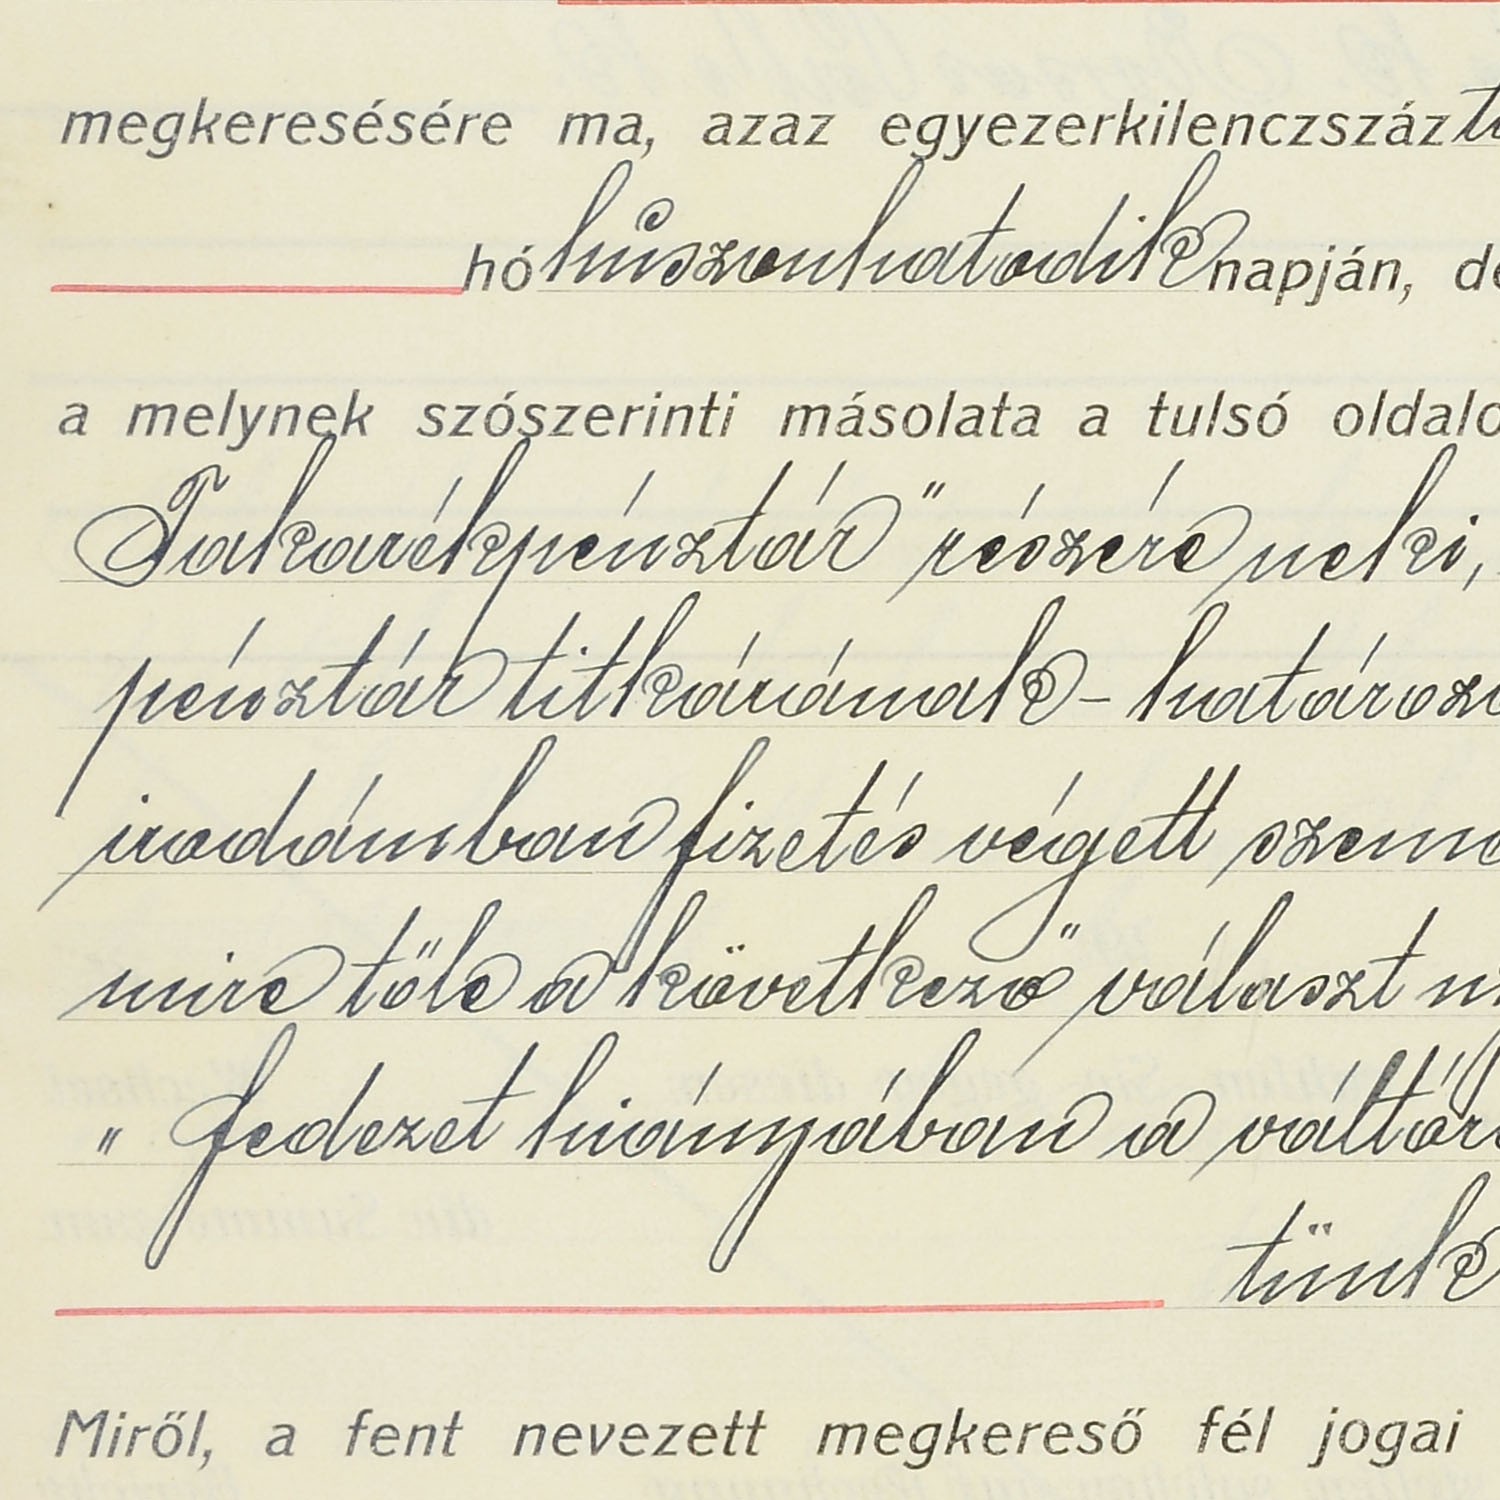 megkeresésére ma, azaz egyezerkilenczszáz
hó huszonhatodik napján,
a melynek szószerinti másolata a tulsó oldalo
Takarékpénztár" részére neki,
pénztár titkárának - határozo
irodámban fizetés végett szem
mire tőle a következő választ
" fedezet hiányában a váltó
tünk
Miről, a fent nevezett megkereső fél jogai